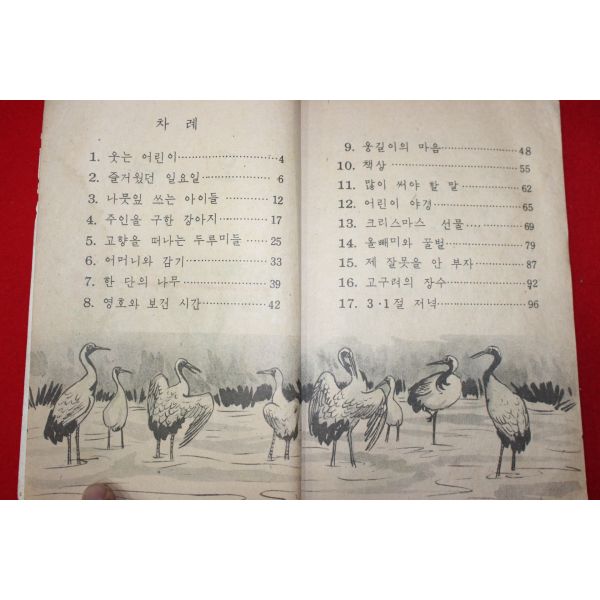 차 례
1. 웃는 어린이 4
2. 즐거웠던 일요일 6
3. 나뭇잎 쓰는 아이들 12
4. 주인을 구한 강아지 17
5. 고향을 떠나는 두루미들 25
6. 어머니와 감기 33
7. 한 단의 나무 39
8. 영호와 보건 시간 42
9. 웅길이의 마음 48
10. 책상 55
11. 많이 써야 할 말 62
12. 어린이 야경 65
13. 크리스마스 선물 69
14. 올빼미와 꿀벌 79
15. 제 잘못을 안 부자 87
16. 고구려의 장수 92
17. 3·1절 저녁 96